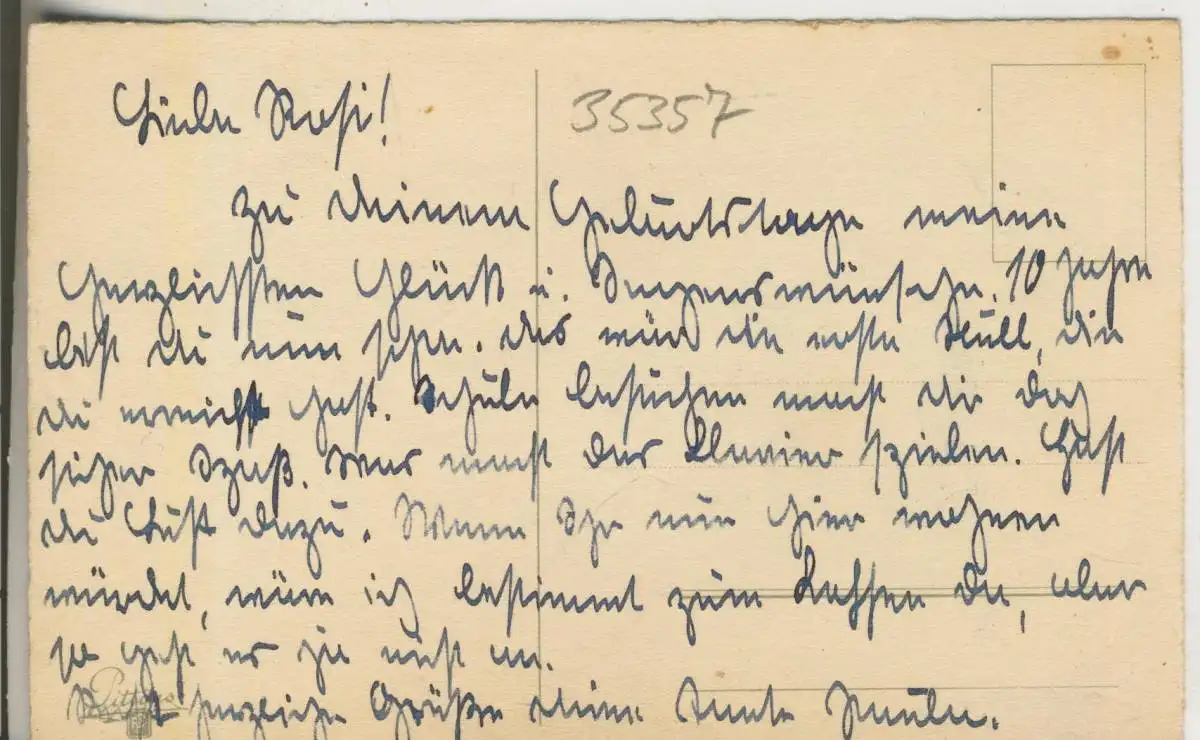 Liebe Rosi!
35357
Zu deinem Geburtstage meine
herzlichsten Glück u. Segenswünsche. 10 Jahre
bist du nun schon. Das wär die erste Null, die
du erreicht hast. Schule besuchen macht dir doch
sicher Spaß. Was macht das Klavier spielen. Hast
du Lust dazu. Wenn Ihr nun hier wohnen
würdet, wäre ich bestimmt zum Kaffee da, aber
so geht es ja nicht an.
herzliche Grüße deine Tante Paula.